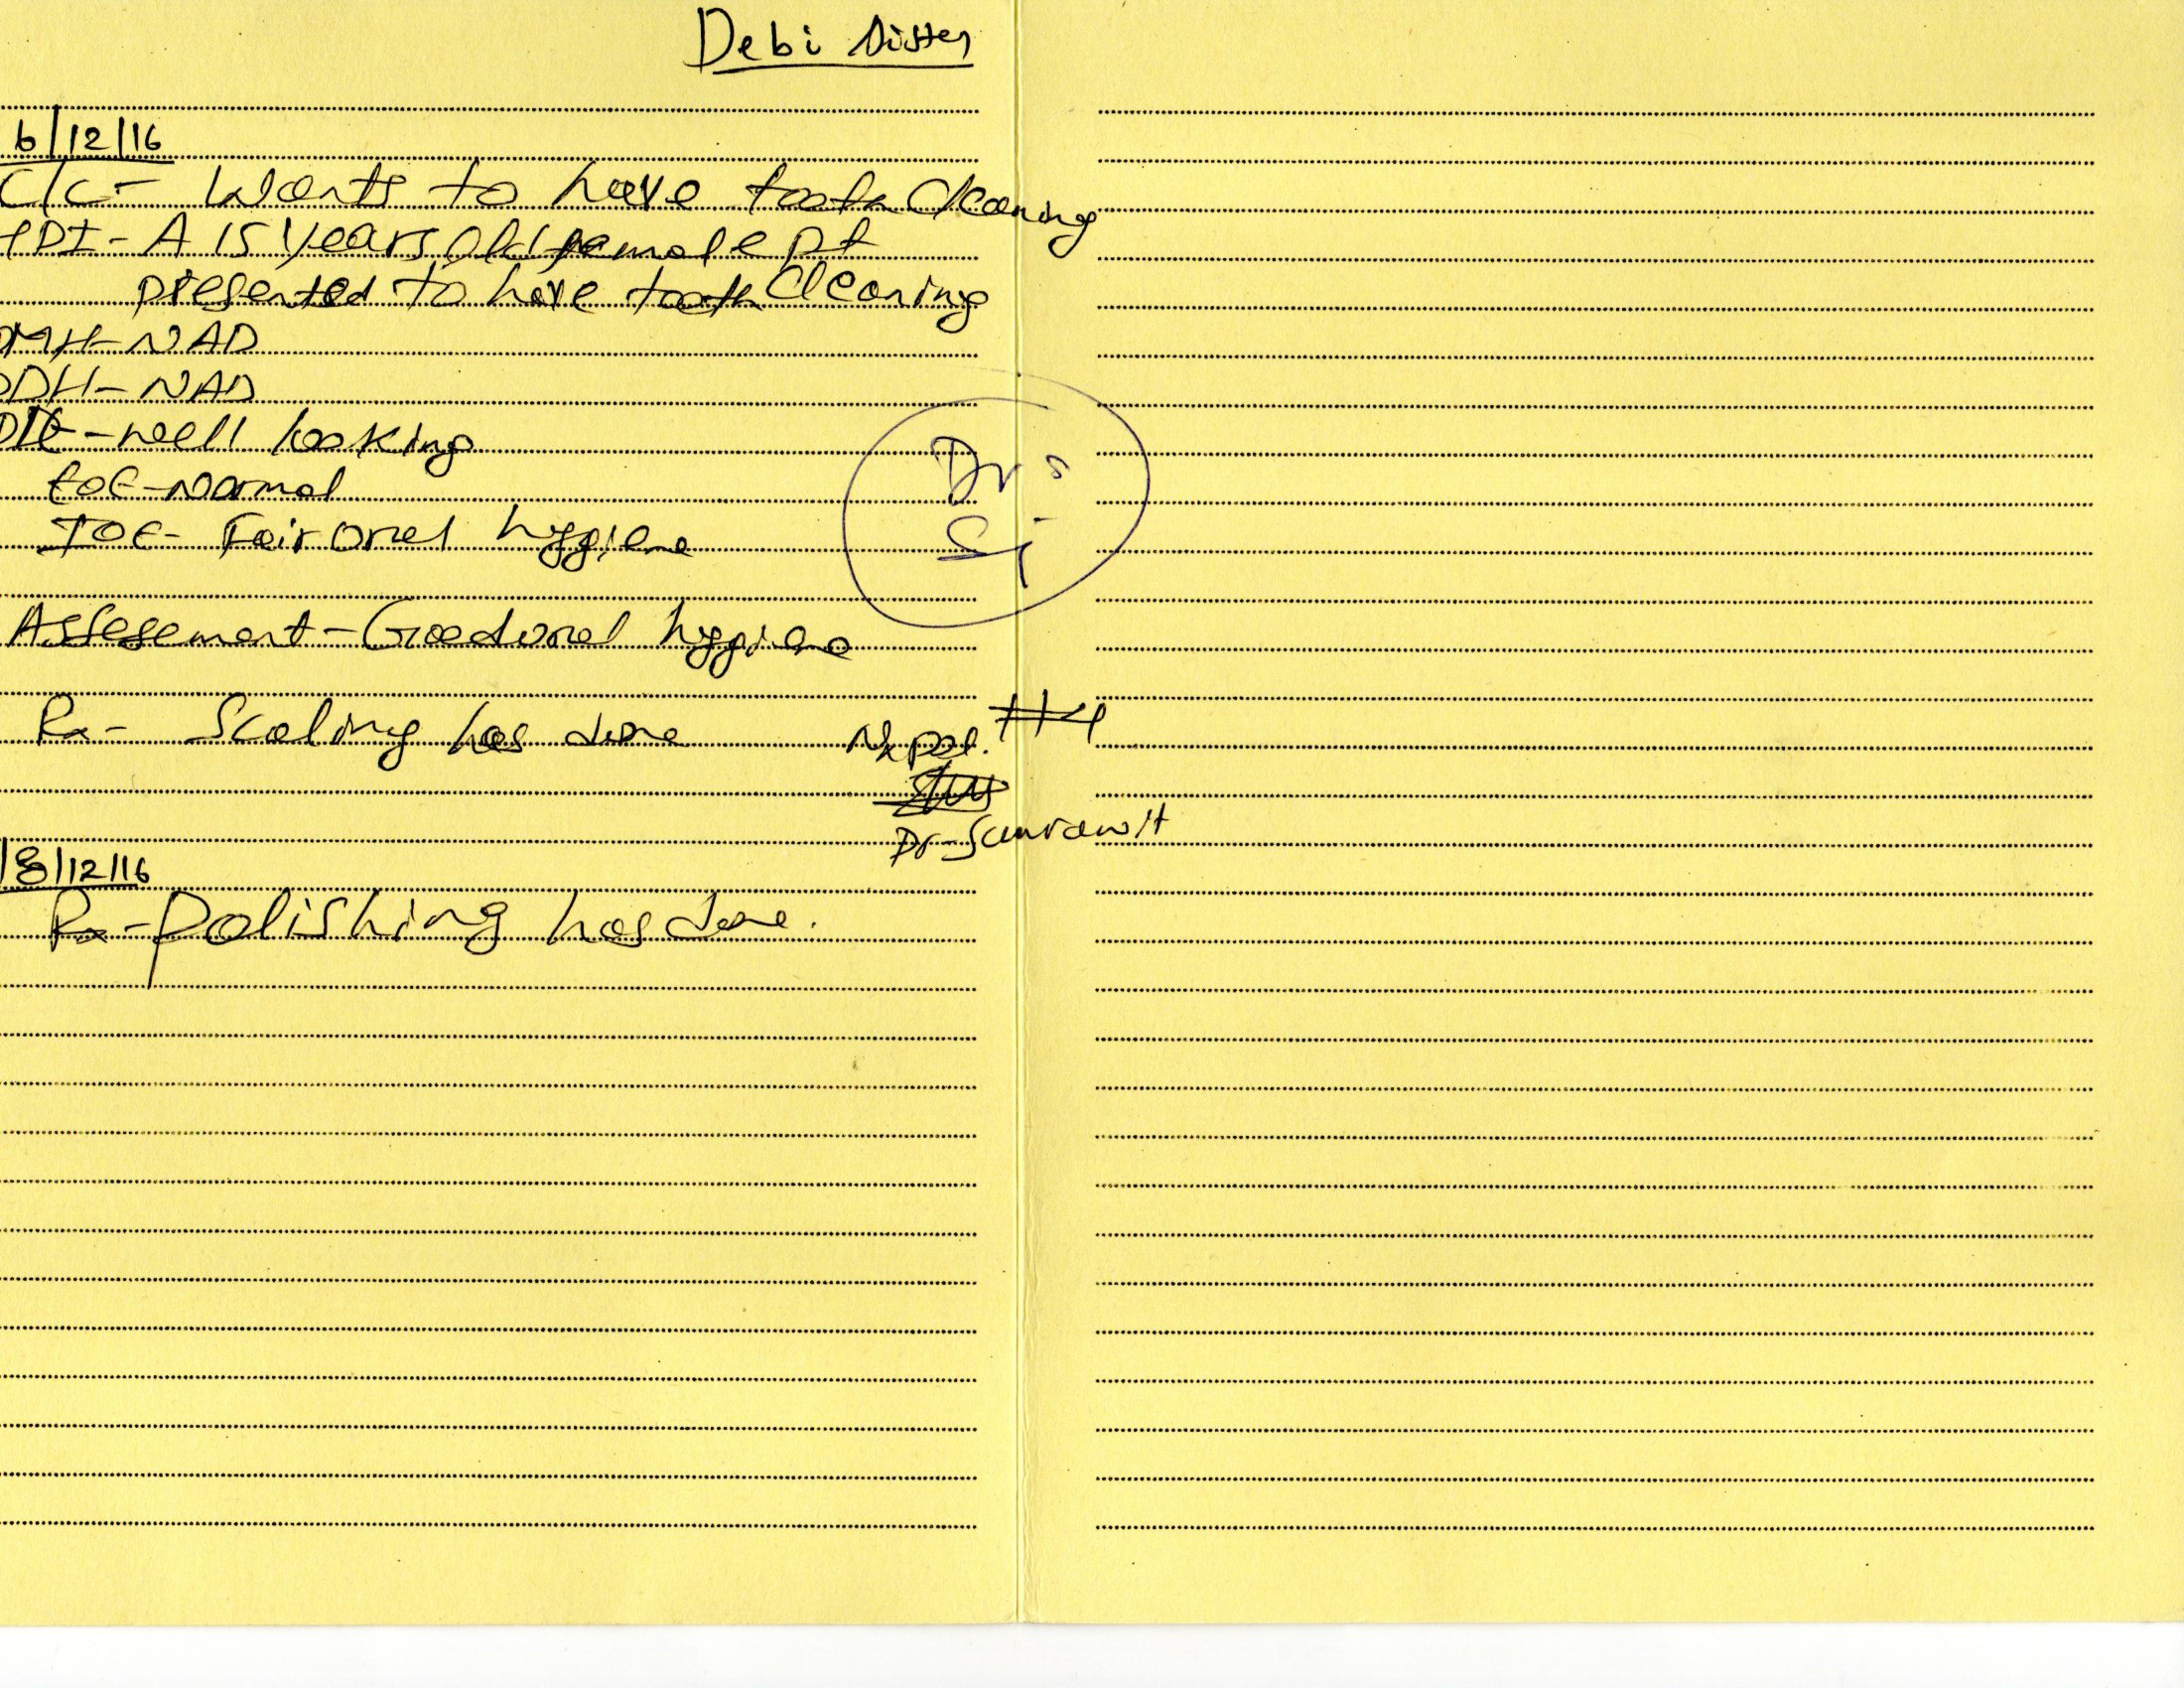 Debi Sister
6/12/16
C/C- Wants to have tooth Cleaning
HPI- A 15 years old female pt
presented to have tooth Cleaning
PMH- NAD
PDH- NAD
O/E- well looking
EOE- Normal
IOE- Fair oral hygiene
Dr S
Assesement- Good oral hygiene
Rx- Scaling has done
Nx pol. #4
Dr Samrawit
18/12/16
Rx- Polishing has done.